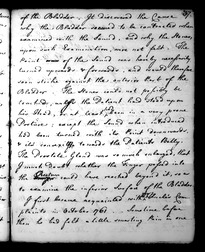 of the Bladder. It discovered the Cause
why the Bladder seemed to be contracted when
examined with the Sound, and why the Stone,
upon such Examination, was not felt. The
Point of the Sound was hardly
turned upwards & forwards, and could therefore
only strike against the anterior Part of the
Bladder. The Stone could not possibly be
touched, unless the Patient had stood upon
his Head, or at least been in a very prone
Posture, or the Sound when introduced
had been turned with its Point downwards,
& its convexity towards the Patients Belly.
The Prostate Gland was so much enlarged, that
I much Doubt whether the Finger passed into
the could have reached beyond it, so as
to examine the inferior Surface of the Bladder.
I first became acquainted with his Com
plaints in October 1761. Sometime before
then he had felt a little uneasy Pain in one